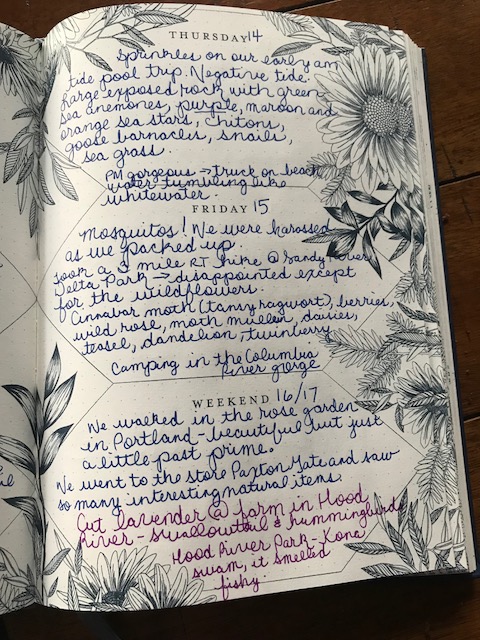 THURSDAY 14
Sprinkles on our early am
tide pool trip. Negative tide.
Large exposed rock with green
sea anemones, purple, maroon and
orange sea stars, chitons,
goose barnacles, snails,
sea grass.
PM gorgeous → truck on beach
water tumbling like
whitewater.
FRIDAY 15
Mosquitos! We were harassed
as we packed up.
Took a 3 mile RT hike @ Sandy River
Delta Park → disappointed except
for the wildflowers.
Cinnabar moth (tansy ragwort), berries,
wild rose, moth mullein, daisies,
teasel, dandelion, twinberry
Camping in the Columbia
River gorge
WEEKEND 16/17
We walked in the rose garden
in Portland - beautiful but just
a little past prime.
We went to the store Paxton Gate and saw
so many interesting natural items.
Cut lavender @ farm in Hood
River - swallowtail & hummingbird
Hood River Park - Kona
swam, it smelled
fishy.